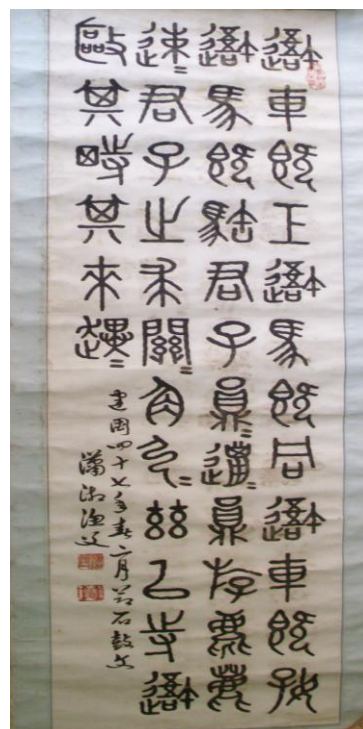 吾車既工吾馬既同吾車既好
吾馬既𩢾君子員=邋=員斿麀鹿
速=君子之求角弓=茲以寺吾
敺其時其來趩=
建國四十七年春二月節石鼓文
瀟湘漁父